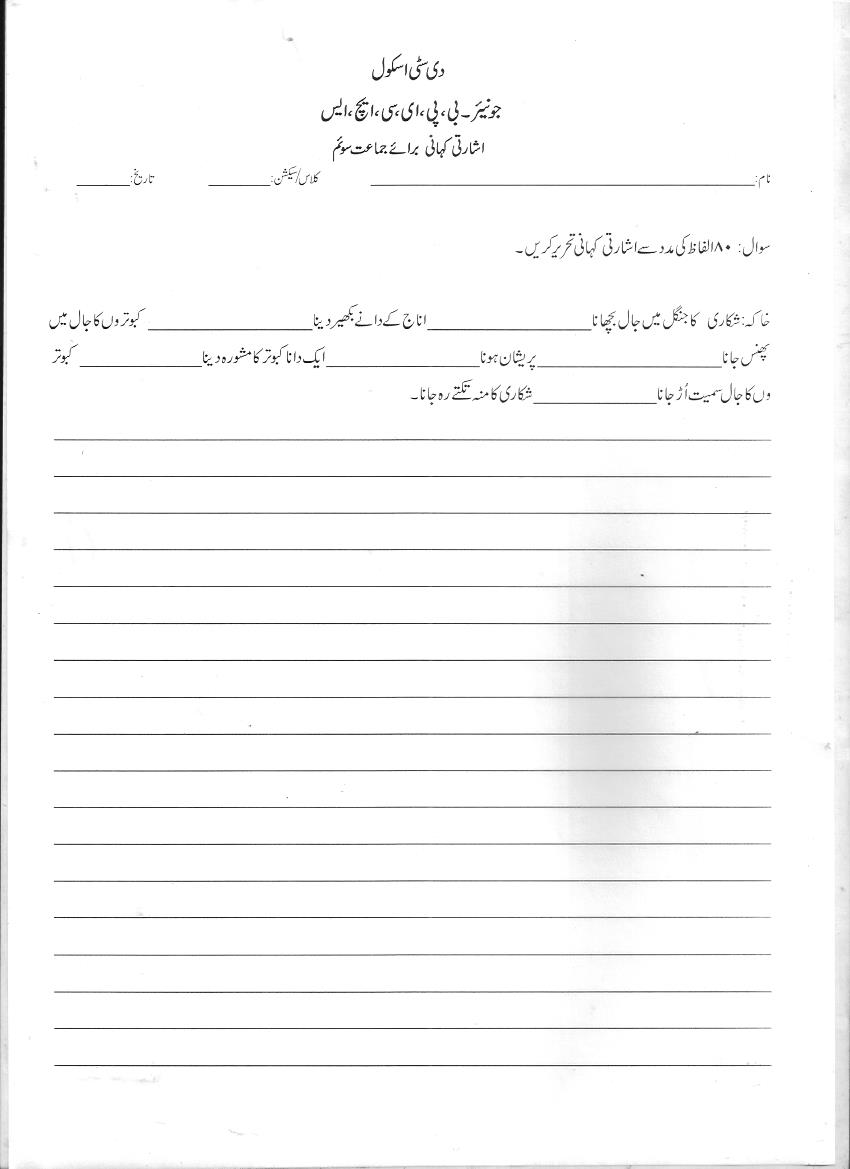 دی سٹی اسکول
جونیئر۔ بی، پی، ای، سی، ایچ، ایس
اشارتی کہانی برائے جماعت سوئم
نام:____________ کلاس/سیکشن:____________ تاریخ:____________
سوال: ۸۰ الفاظ کی مدد سے اشارتی کہانی تحریر کریں۔
خاکہ: شکاری کا جنگل میں جال بچھانا____________اناج کے دانے بکھیر دینا____________ کبوتروں کا جال میں
پھنس جانا____________پریشان ہونا____________ایک دانا کبوتر کا مشورہ دینا____________ کبوتر
وں کا جال سمیت اُڑ جانا____________شکاری کا منہ تکتے رہ جانا۔